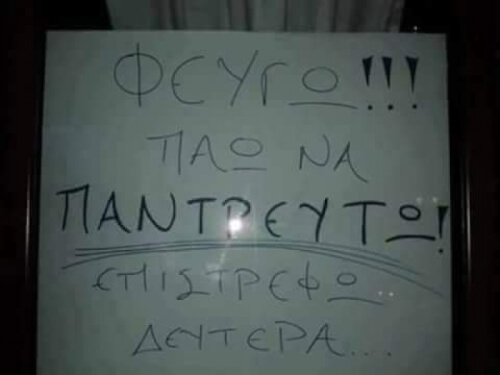 ΦΕΥΓΩ!!!
ΠΑΩ ΝΑ
ΠΑΝΤΡΕΥΤΩ!
ΕΠΙΣΤΡΕΦΩ..
ΔΕΥΤΕΡΑ...